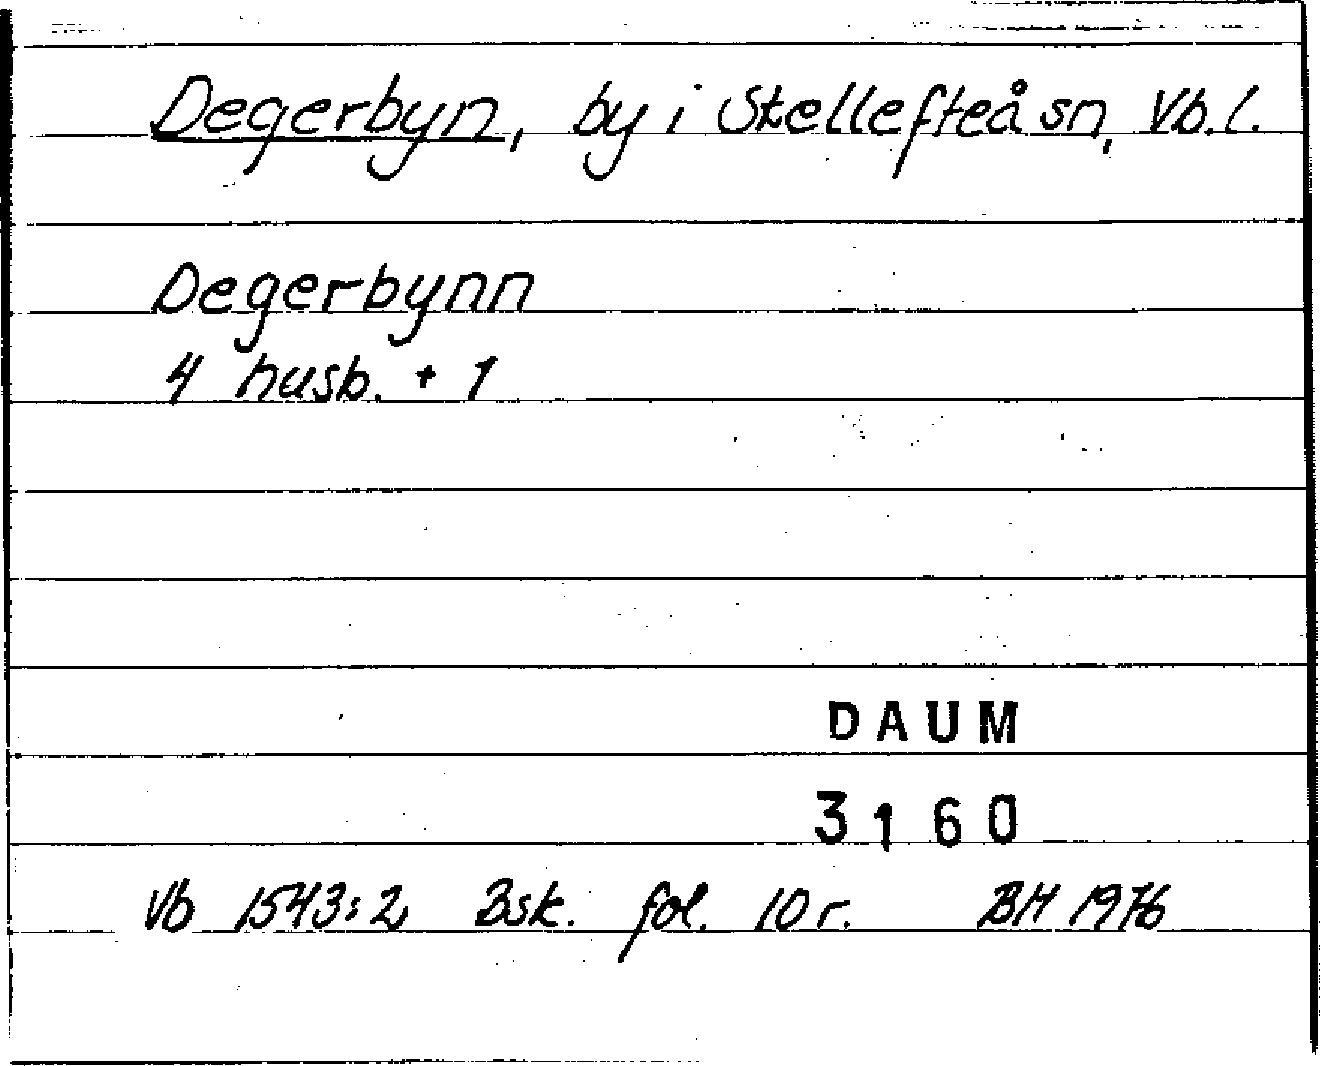 Degerbyn, by i Skellefteå sn, Vb.l.
Degerbynn
4 husb. + 1
DAUM
3160
Vb 1543:2, Bsk. fol. 10 r. BH 1976